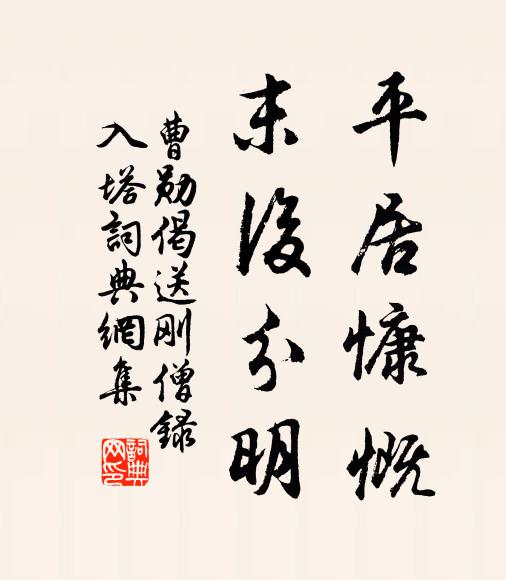 平居慷慨
末後分明
曹勛偈送剛僧録
入塔詞典網集
詞典
网印